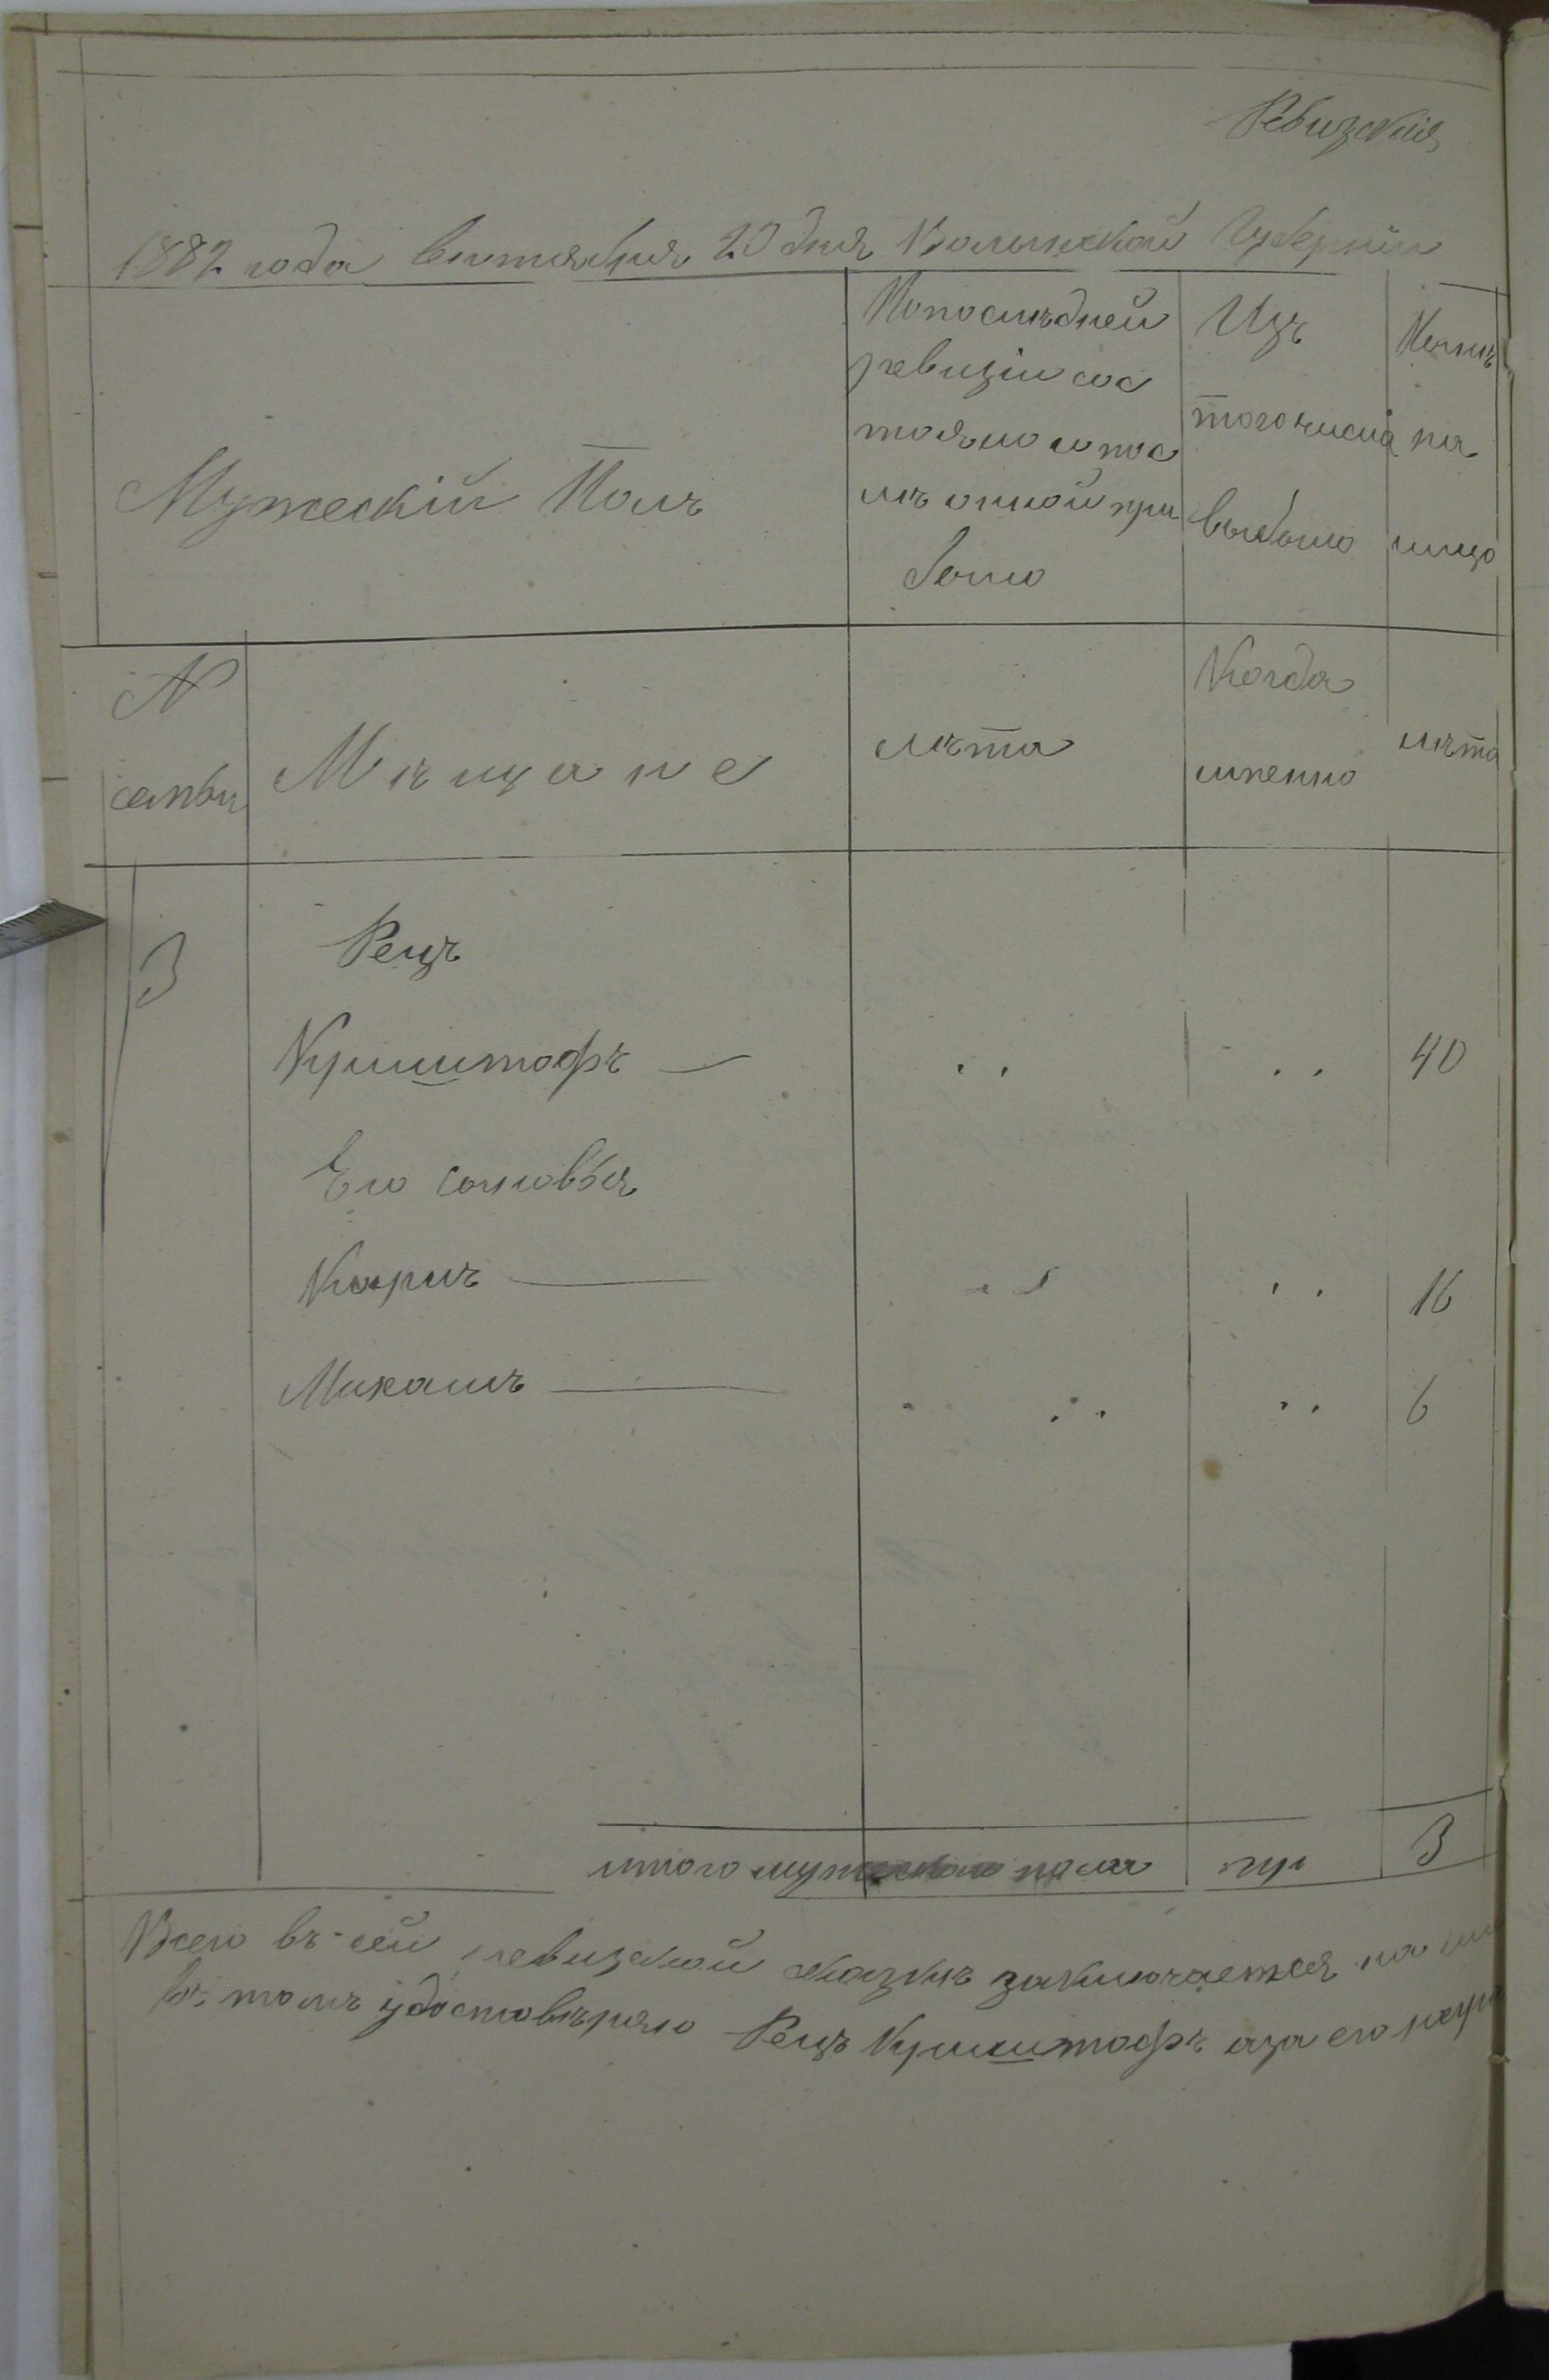 Ревизскія
1882 года Октября 20 дня Волынской Губерніи
Мужескій Полъ
Попослѣдней
ревизіи сос
тояло и пос
лѣ оной при
было
Изъ
того числа
выбыло
Нынѣ
на
лицо
N
семьи
Мѣщане
лѣта
Когда
именно
лѣта
3
Рецъ
Криштофъ — 40
Его сыновья
Карлъ — 16
Михаилъ — 6
итого мужеского пола три 3
Всего въ сей ревизской сказкѣ заключается на ли
въ томъ удостовѣряю Рецъ Криштофъ аза его